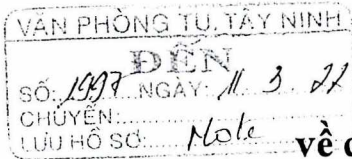 VĂN PHÒNG TU. TÂY NINH
ĐẾN
SỐ: 1997 NGÀY: 11 3 22
CHUYỂN:
LƯU HỒ SƠ: Mole
về c